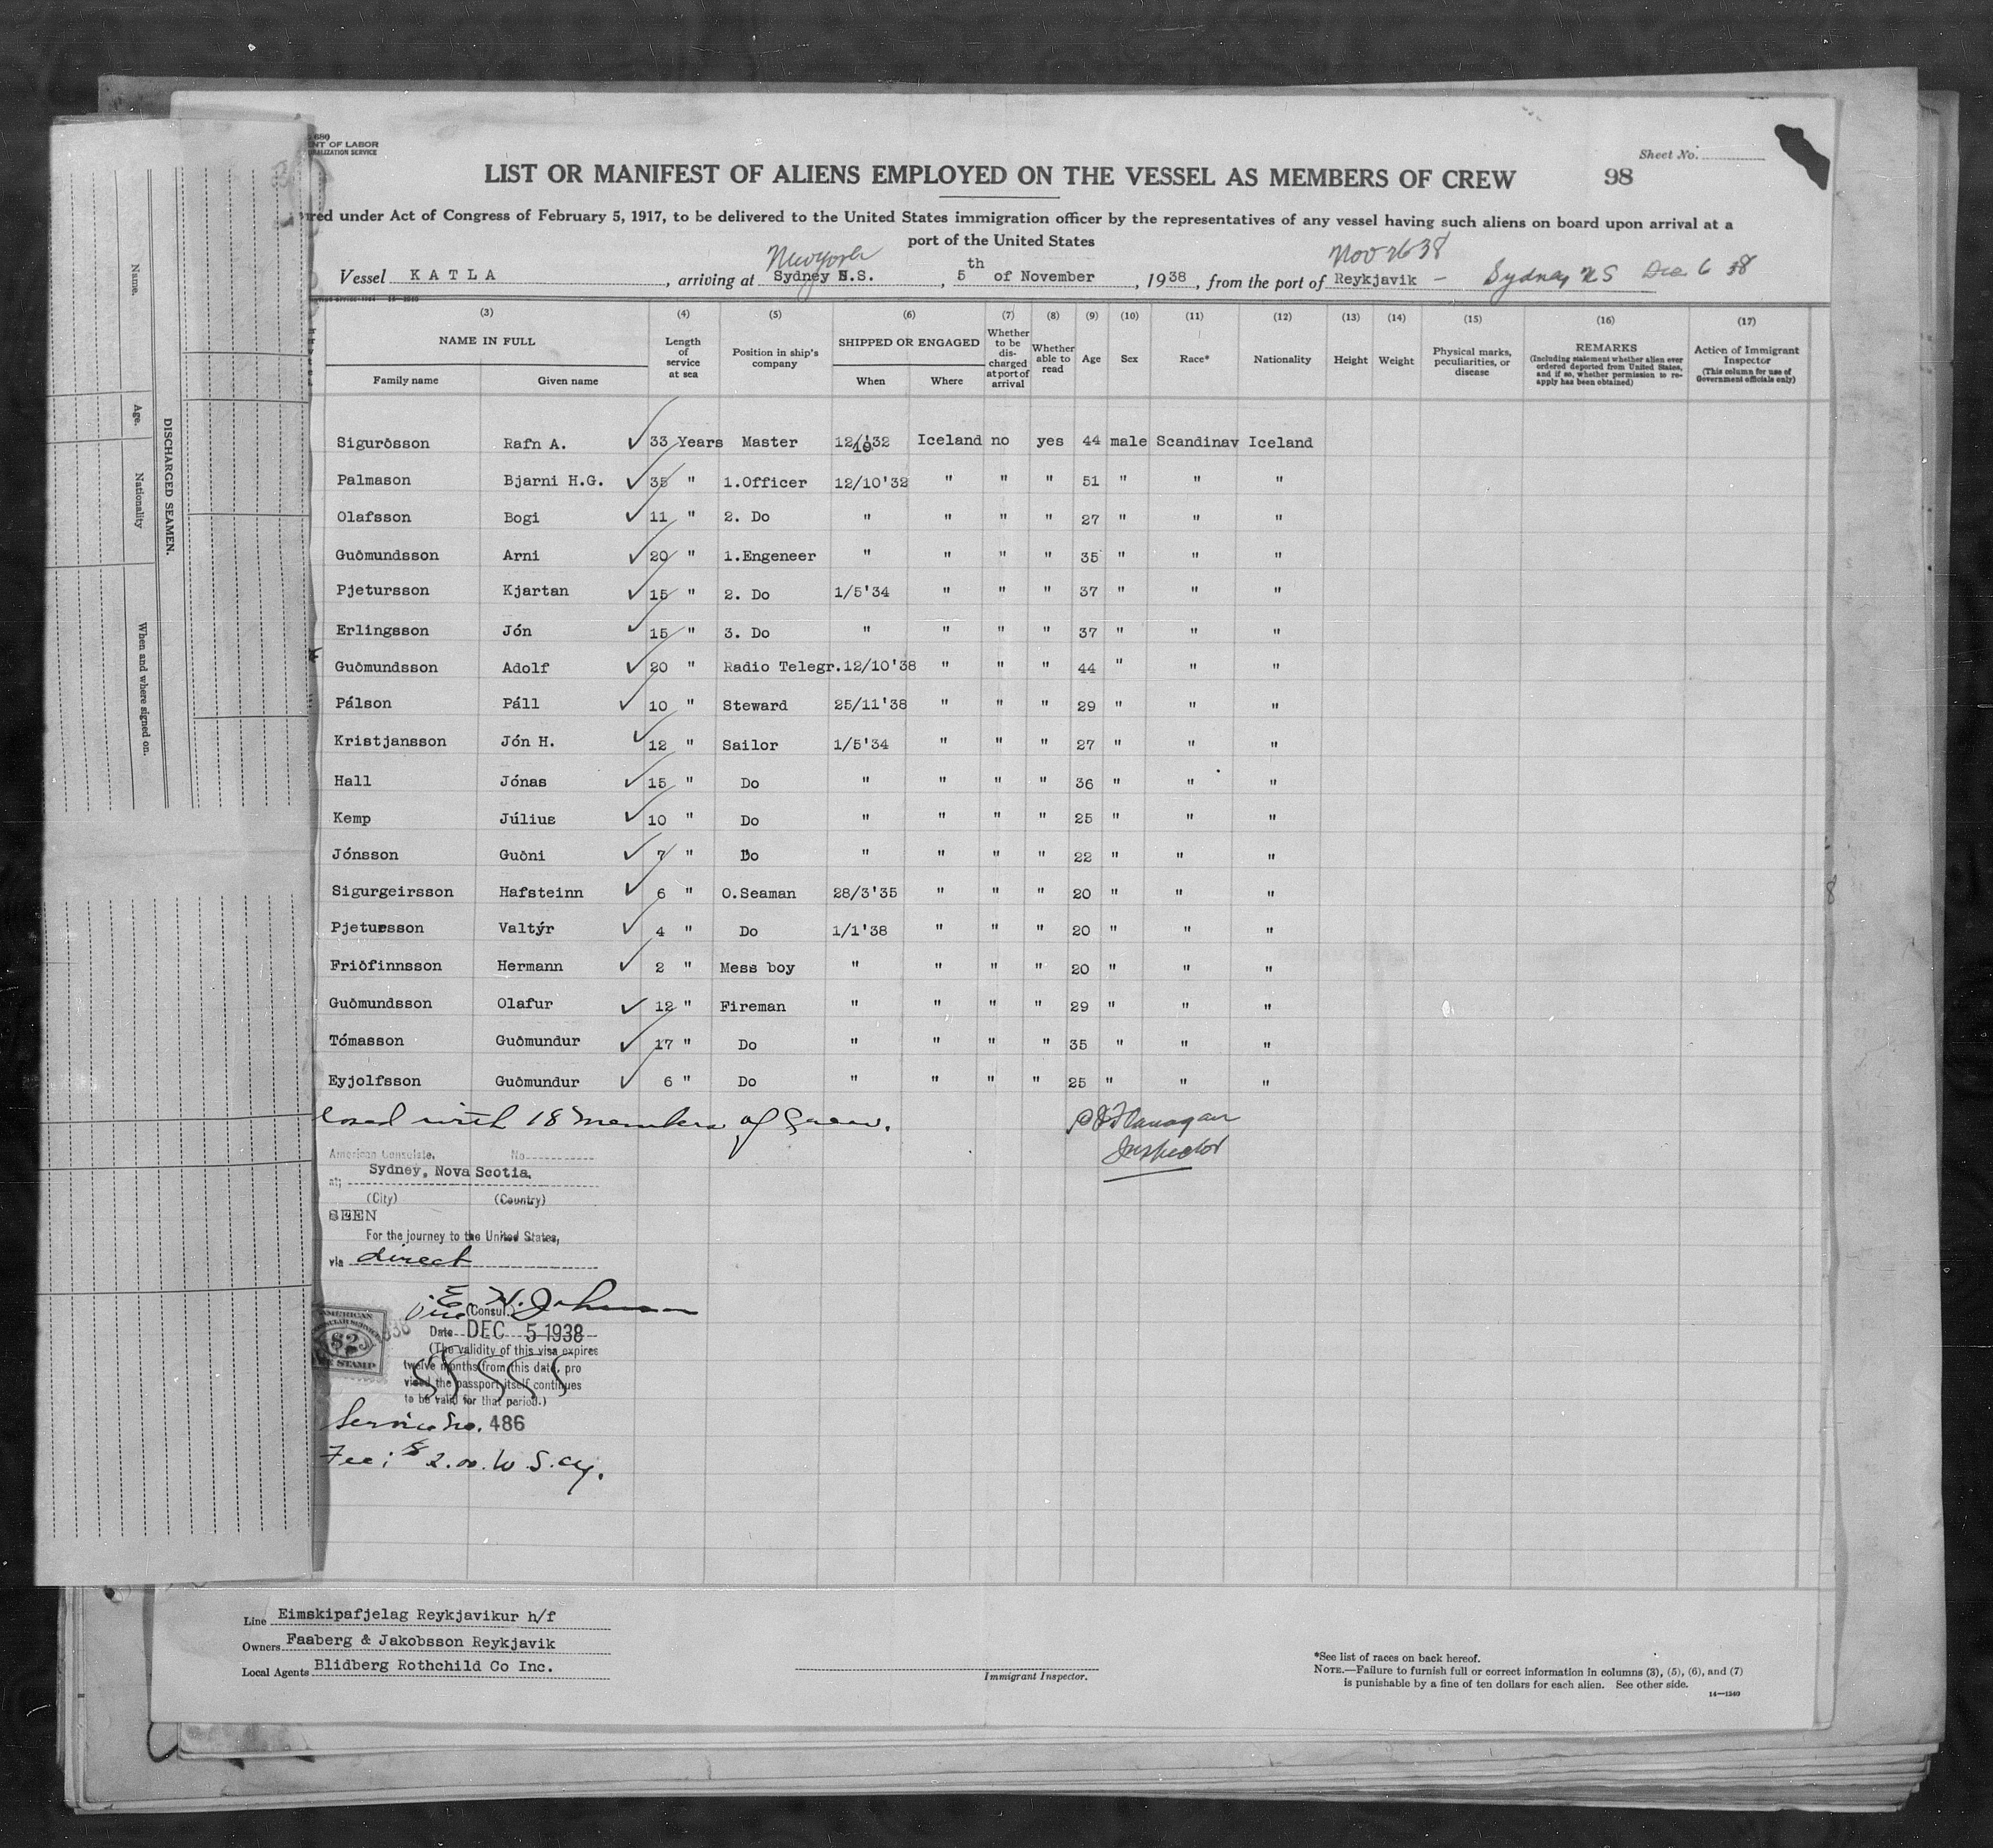 680
NT OF LABOR
ALIZATION SERVICE
Sheet No.
LIST OR MANIFEST OF ALIENS EMPLOYED ON THE VESSEL AS MEMBERS OF CREW
98
red under Act of Congress of February 5, 1917, to be delivered to the United States immigration officer by the representatives of any vessel having such aliens on board upon arrival at a
port of the United States
New York Nov 26 38
Vessel KATLA , arriving at Sydney N.S. , 5th of November , 1938 , from the port of Reykjavik - Sydney NS Dec 6 38
(3) (4) (5) (6) (7) (8) (9) (10) (11) (12) (13) (14) (15) (16) (17)
NAME IN FULL
Family name Given name
Length of service at sea
Position in ship's company
SHIPPED OR ENGAGED
When Where
Whether to be discharged at port of arrival
Whether able to read
Age Sex Race* Nationality Height Weight
Physical marks, peculiarities, or disease
REMARKS
(Including statement whether alien ever ordered deported from United States, and if so, whether permission to re-apply has been obtained)
Action of Immigrant Inspector
(This column for use of Government officials only)
Sigurðsson Rafn A. ✓ 33 Years Master 12/10'32 Iceland no yes 44 male Scandinav Iceland
Palmason Bjarni H.G. ✓ 35 " 1.Officer 12/10'32 " " " 51 " " "
Olafsson Bogi ✓ 11 " 2. Do " " " " 27 " " "
Guðmundsson Arni ✓ 20 " 1.Engeneer " " " " 35 " " "
Pjetursson Kjartan ✓ 15 " 2. Do 1/5'34 " " " 37 " " "
Erlingsson Jón ✓ 15 " 3. Do " " " " 37 " " "
Guðmundsson Adolf ✓ 20 " Radio Telegr. 12/10'38 " " " 44 " " "
Pálson Páll ✓ 10 " Steward 25/11'38 " " " 29 " " "
Kristjansson Jón H. ✓ 12 " Sailor 1/5'34 " " " 27 " " "
Hall Jónas ✓ 15 " Do " " " " 36 " " "
Kemp Július ✓ 10 " Do " " " " 25 " " "
Jónsson Guðni ✓ 7 " Do " " " " 22 " " "
Sigurgeirsson Hafsteinn ✓ 6 " O.Seaman 28/3'35 " " " 20 " " "
Pjetursson Valtýr ✓ 4 " Do 1/1'38 " " " 20 " " "
Friðfinnsson Hermann ✓ 2 " Mess boy " " " " 20 " " "
Guðmundsson Olafur ✓ 12 " Fireman " " " " 29 " " "
Tómasson Guðmundur ✓ 17 " Do " " " " 35 " " "
Eyjolfsson Guðmundur ✓ 6 " Do " " " " 25 " " "
losed with 18 members of Crew.
Flanagan
Inspector
American Consulate, No
at; Sydney, Nova Scotia.
(City) (Country)
SEEN
For the journey to the United States,
via direct
E. H. Johnson
Vice (Consul)
Date DEC 5 1938
(The validity of this visa expires
twelve months from this date, pro
vided the passport itself continues
to be valid for that period.)
AMERICAN
$2
FEE STAMP
Service No. 486
Fee: $2.00. U S. Cy.
Line Eimskipafjelag Reykjavikur h/f
Owners Faaberg & Jakobsson Reykjavik
Local Agents Blidberg Rothchild Co Inc.
Immigrant Inspector.
*See list of races on back hereof.
NOTE.—Failure to furnish full or correct information in columns (3), (5), (6), and (7)
is punishable by a fine of ten dollars for each alien. See other side.
14—1240
DISCHARGED SEAMEN.
Name.
Age.
Nationality
When and where signed on.